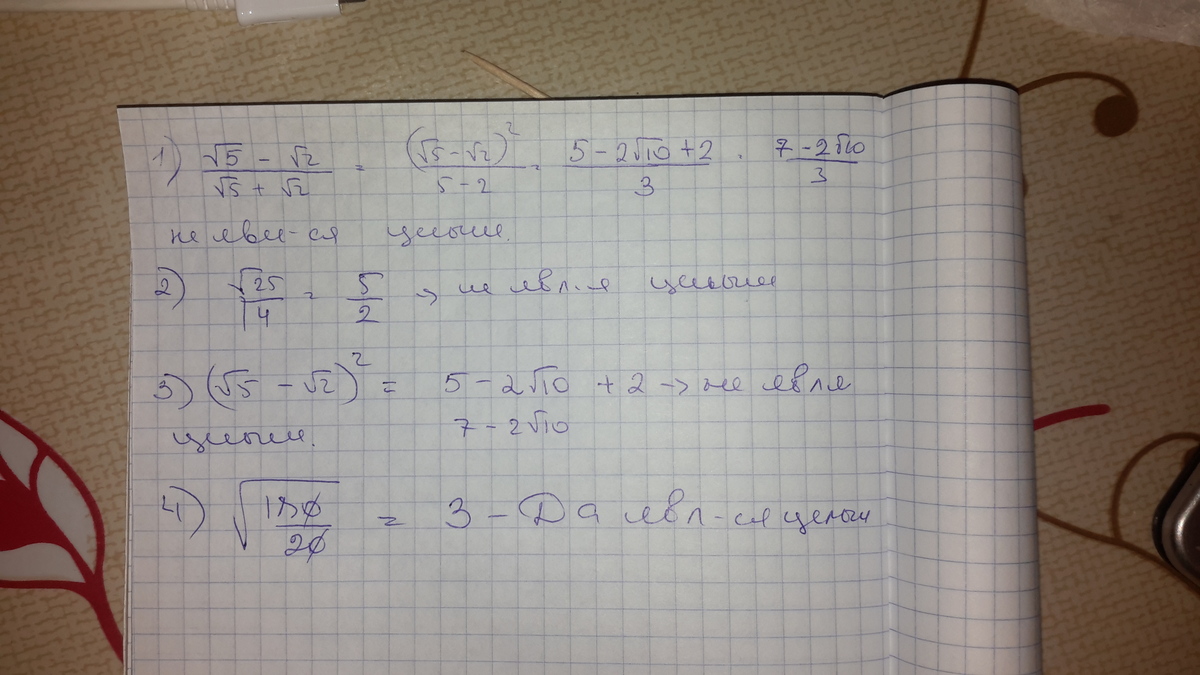 1) (√5 − √2)/(√5 + √2) = (√5 − √2)²/(5 − 2) = (5 − 2√10 + 2)/3 . (7 − 2√10)/3
не явл-ся целым.
2) √25/√4 = 5/2 → не явл-я целым
3) (√5 − √2)² = 5 − 2√10 + 2 → не явля
целым. 7 − 2√10
4) √(180/20) = 3 − Да явл-ся целым